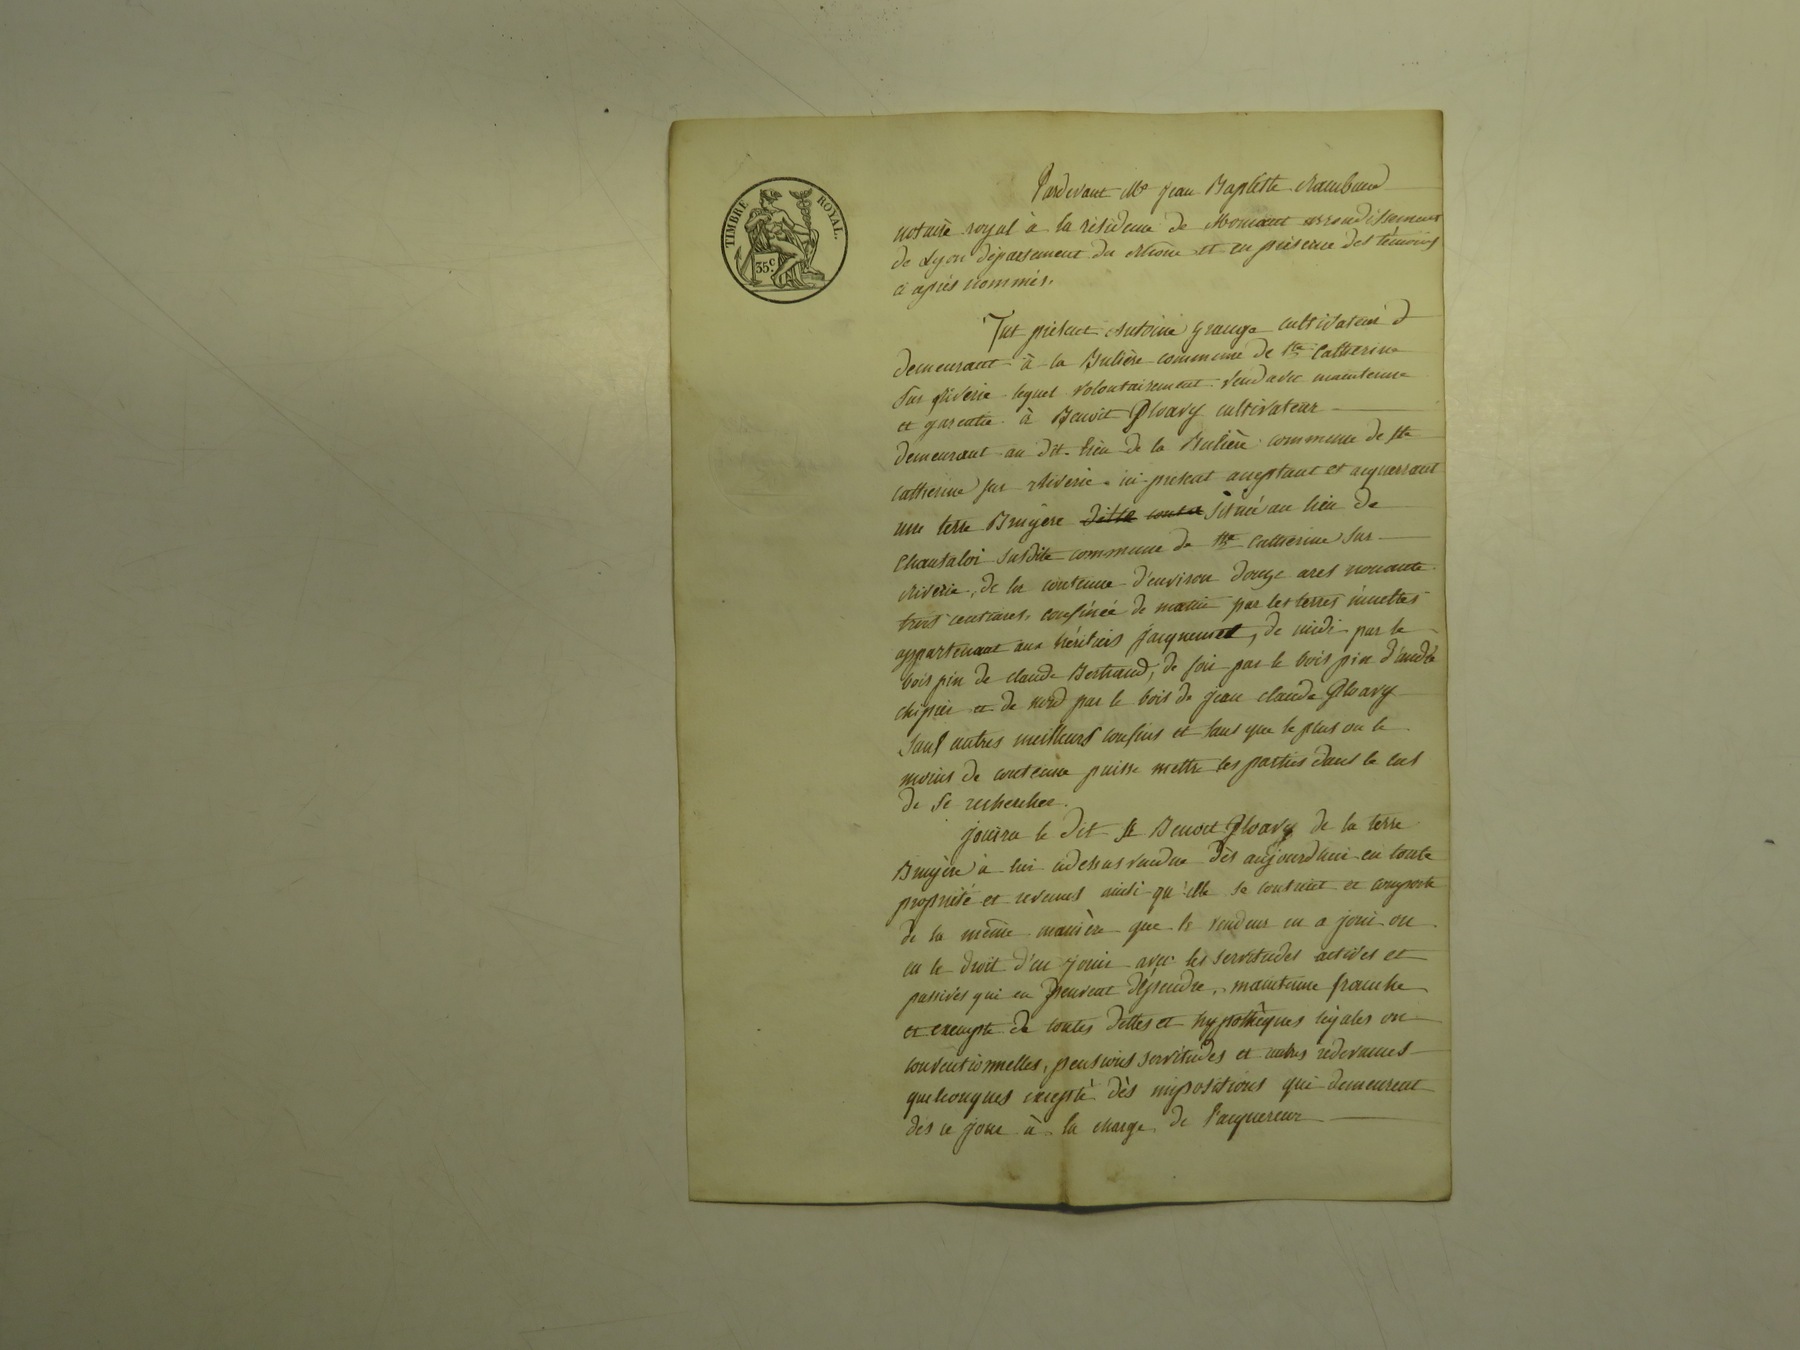 TIMBRE ROYAL.
35 c
Pardevant Me Jean Baptiste Rambaud
notaire royal à la résidence de Mornant arrondissement
de Lyon département du Rhône et en présence des témoins
ci après nommés.
Fut présent Antoine Grange cultivateur
demeurant à la Bulière commune de Ste Catherine
sur Riverie lequel volontairement vend avec maintenue
et garentie à Benoit Ploavy cultivateur
demeurant au dit lieu de la Bulière commune de Ste
Catherine sur Riverie ici présent acceptant et acquerrant
une terre Bruyère située au lieu de
Chantaloi susdite commune de Ste Catherine sur
Riverie, de la contenue d'environ douze ares nonante
trois centiares, confinée de matin par les terres incultes
appartenant aux héritiers Jacquemet, de midi par le
bois pin de claude Bertrand, de soir par le bois pin d'andré
chipier et de nord par le bois de jean claude Ploavy
sauf autres meilleurs confins et sans que le plus ou le
moins de contenue puisse mettre les parties dans le cas
de se rechercher.
jouira le dit Sr Benoit Ploavy de la terre
Bruyère à lui cidessus vendue dès aujourd'hui en toute
propriété et revenus ainsi qu'elle se contient et comporte
de la même manière que le vendeur en a joui ou
eu le droit d'en jouir avec les servitudes actives et
passives qui en peuvent dépendre, maintenue franche
et exempte de toutes dettes et hypothèques légales ou
conventionnelles, pensions servitudes et autres redevances
quelconques excepté dès impositions qui demeurent
dès ce jour à la charge de l'acquereur